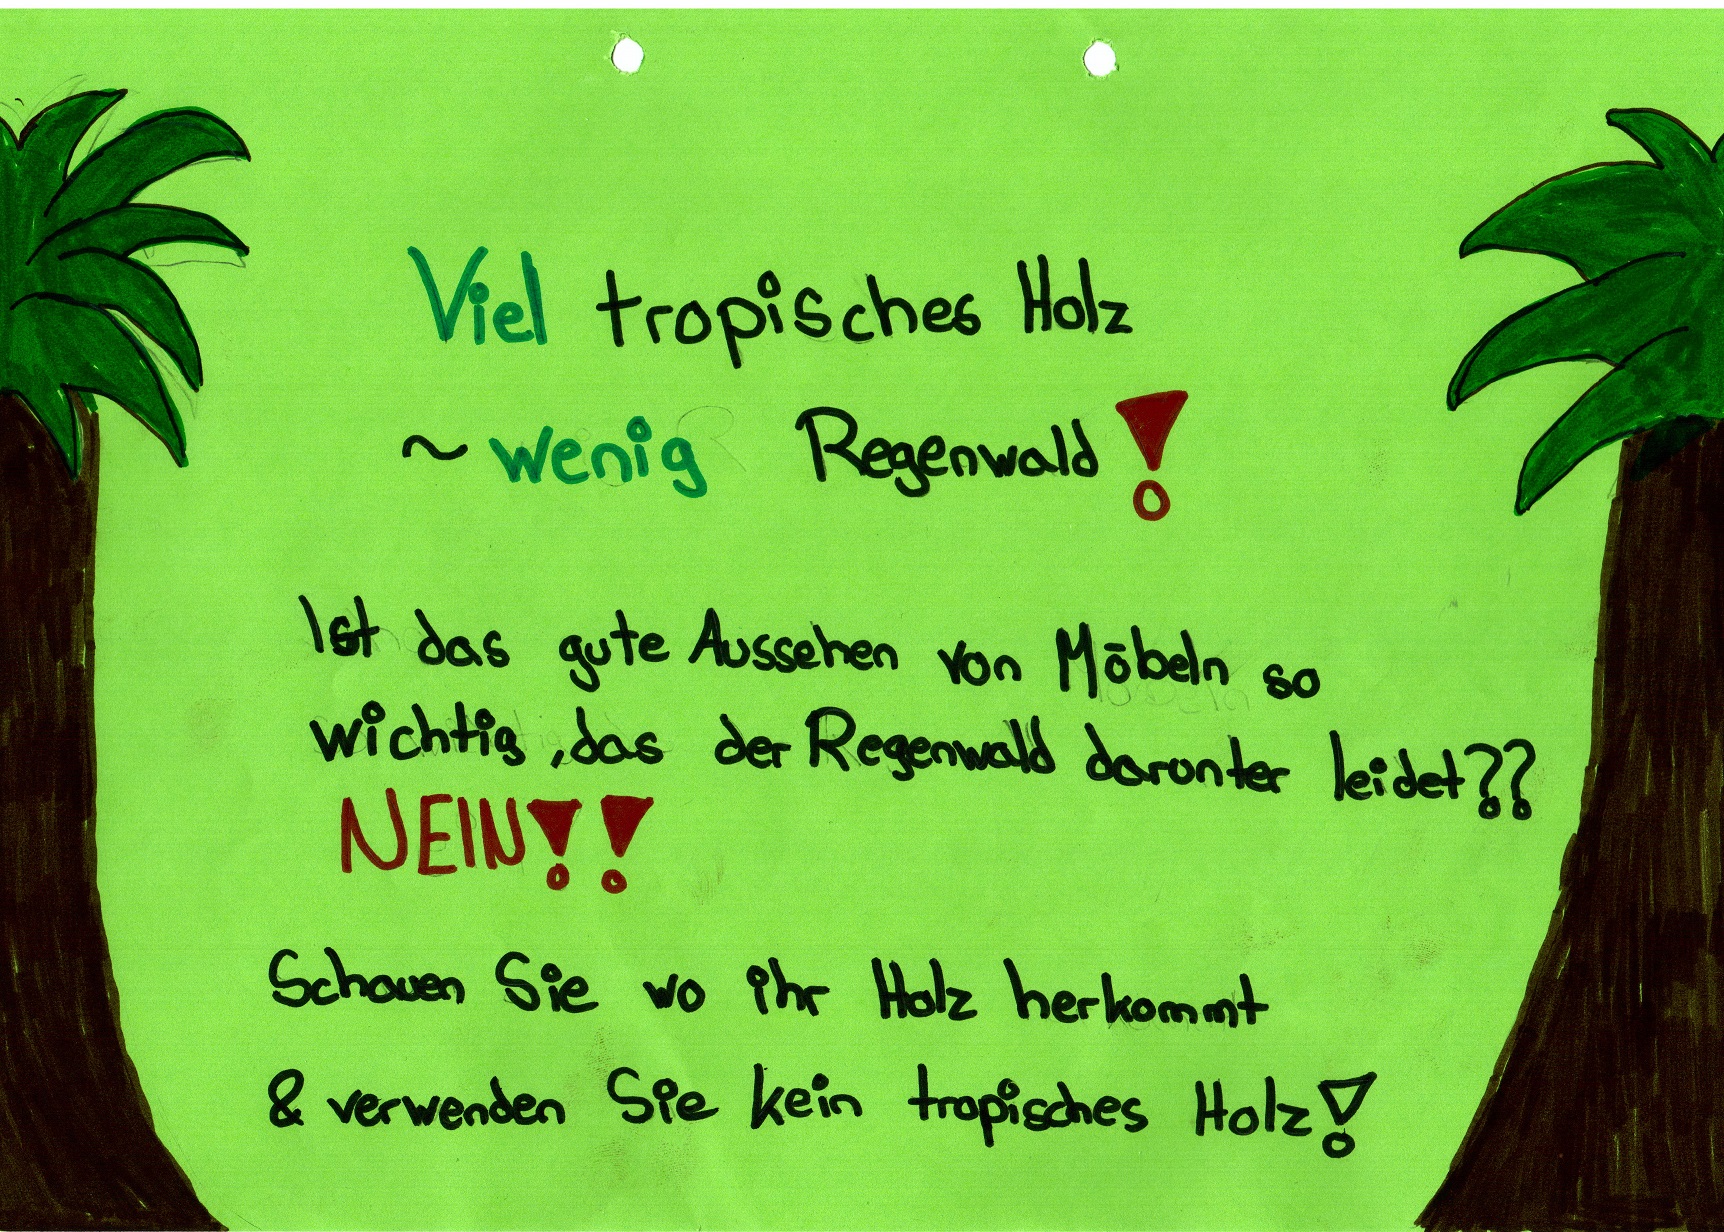 Viel tropisches Holz
~ wenig Regenwald!
Ist das gute Aussehen von Möbeln so
wichtig, das der Regenwald darunter leidet??
NEIN!!
Schauen Sie wo ihr Holz herkommt
& verwenden Sie kein tropisches Holz!